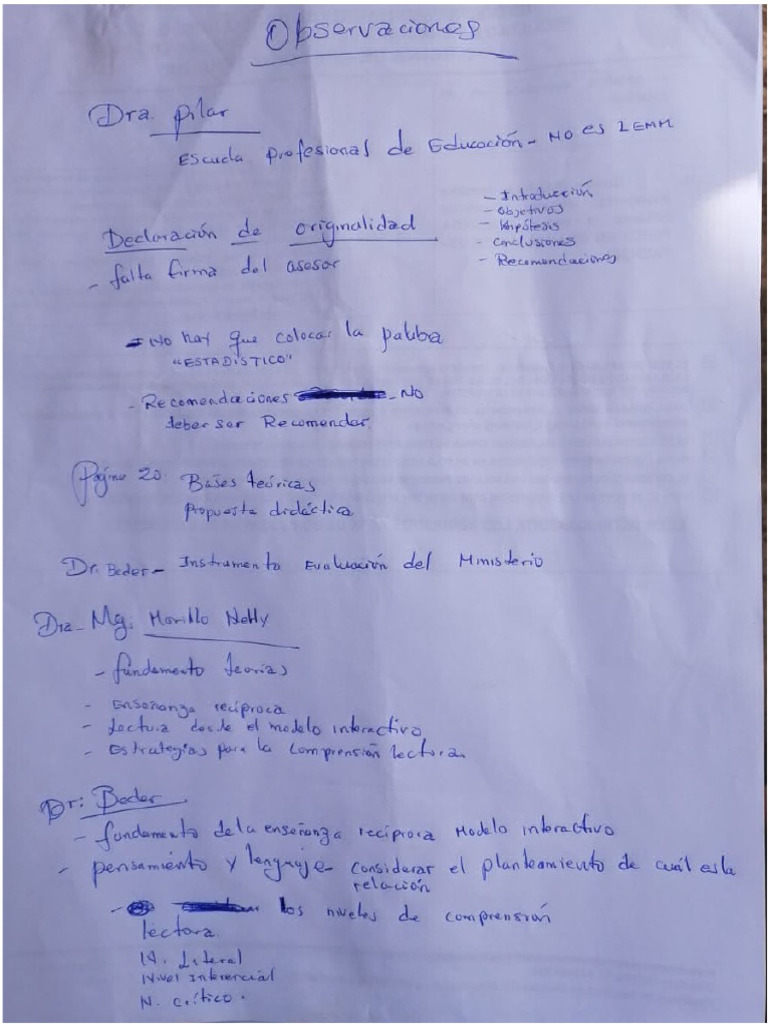 Observaciones
Dra. Pilar
Escuela profesional de Educación - NO es LEMM
- Introducción
- Objetivos
- Hipótesis
- Conclusiones
- Recomendaciones
Declaración de originalidad
- falta firma del asesor
- No hay que colocar la palabra
"ESTADÍSTICO"
- Recomendaciones - No
deber ser Recomendar.
Página 20. Bases teóricas
Propuesta didáctica
Dr. Beder - Instrumento Evaluación del Ministerio
Dra - Mg: Morillo Nelly
- fundamento teorías
- Enseñanza recíproca
- Lectura desde el modelo interactivo
- Estrategias para la comprensión lectora.
Dr: Beder
- fundamento de la enseñanza recíproca Modelo interactivo
- pensamiento y lenguaje - considerar el planteamiento de cuál es la
relación
- los niveles de comprensión
lectora.
N. Literal
Nivel Inferencial
N. Crítico.